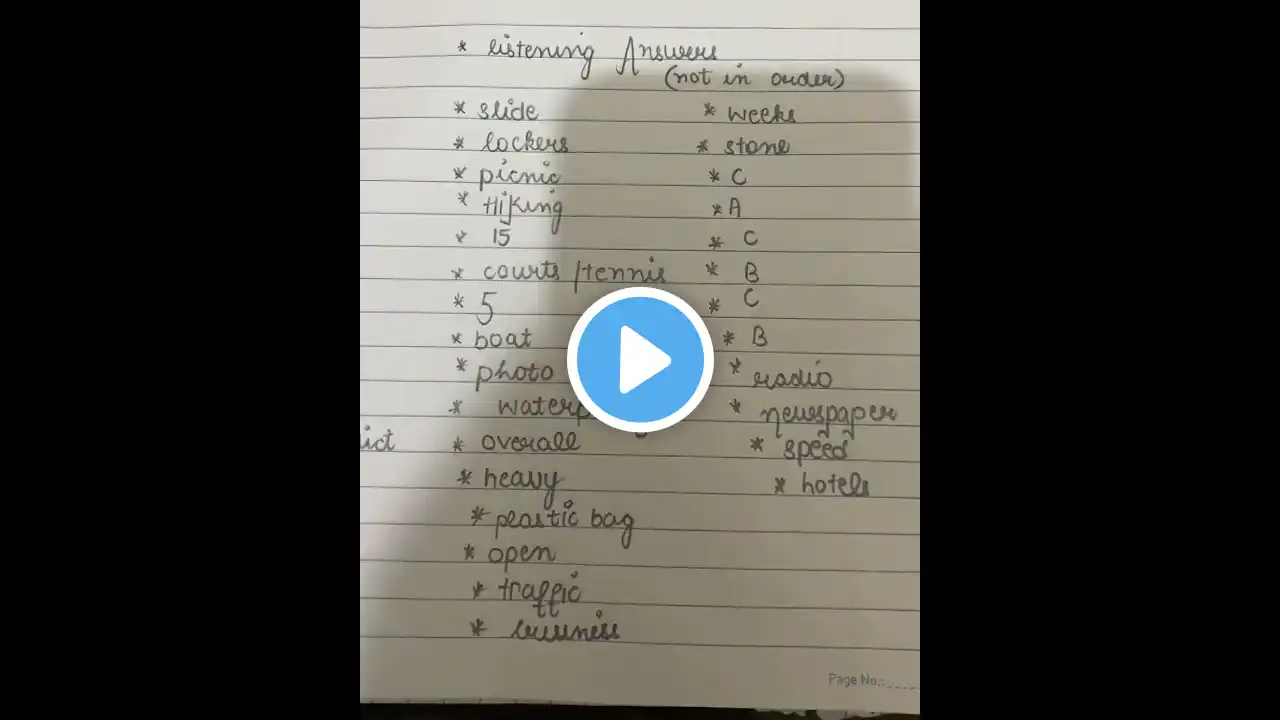 * listening Answers
(not in order)
* slide
* lockers
* picnic
* Hijking
* 15
* courts /tennis
* 5
* boat
* photo
*
ict
* overall
* heavy
* plastic bag
* open
* traffic
* business
* weeks
* stone
* C
* A
* C
* B
* C
* B
* radio
* newspaper
* speed
* hotels
Page No.: